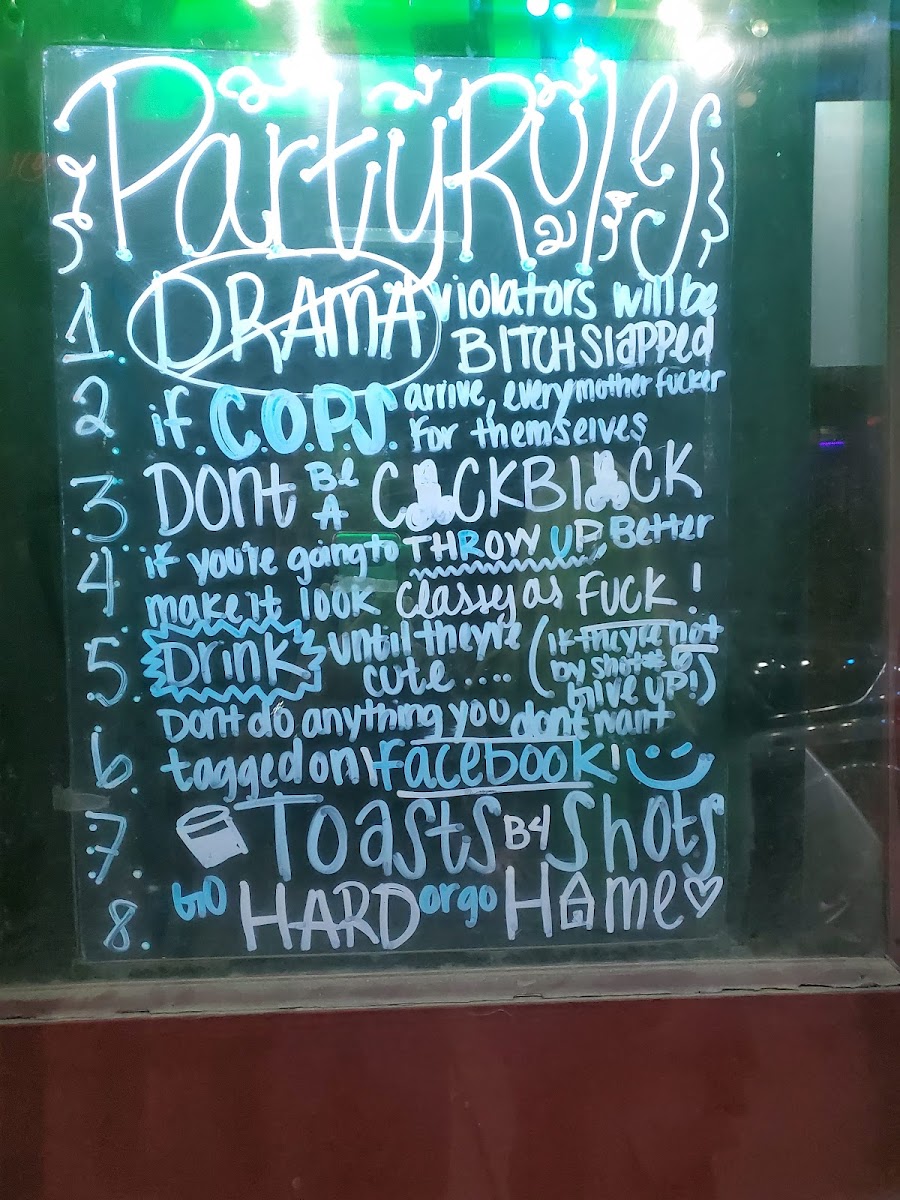 Party Rules
1. DRAMA violators will be
BITCH slapped
2. if C.O.P.S. arrive, every mother fucker
for themselves
3. Dont Be A COCKBLOCK
4. if you're going to THROW UP, Better
make it look classy as FUCK!
5. Drink until they're cute .... (if they're not
by shot# 6
Give up!)
6. Dont do anything you dont want
tagged on \facebook!
7. Toasts B4 Shots
8. GO HARD or go Home